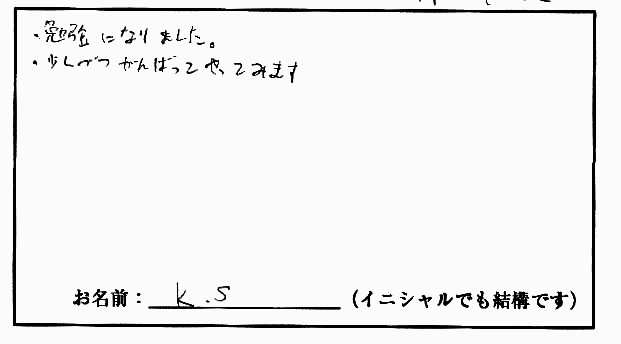 ・勉強になりました。
・少しづつがんばってやってみます
お名前：K.S（イニシャルでも結構です）